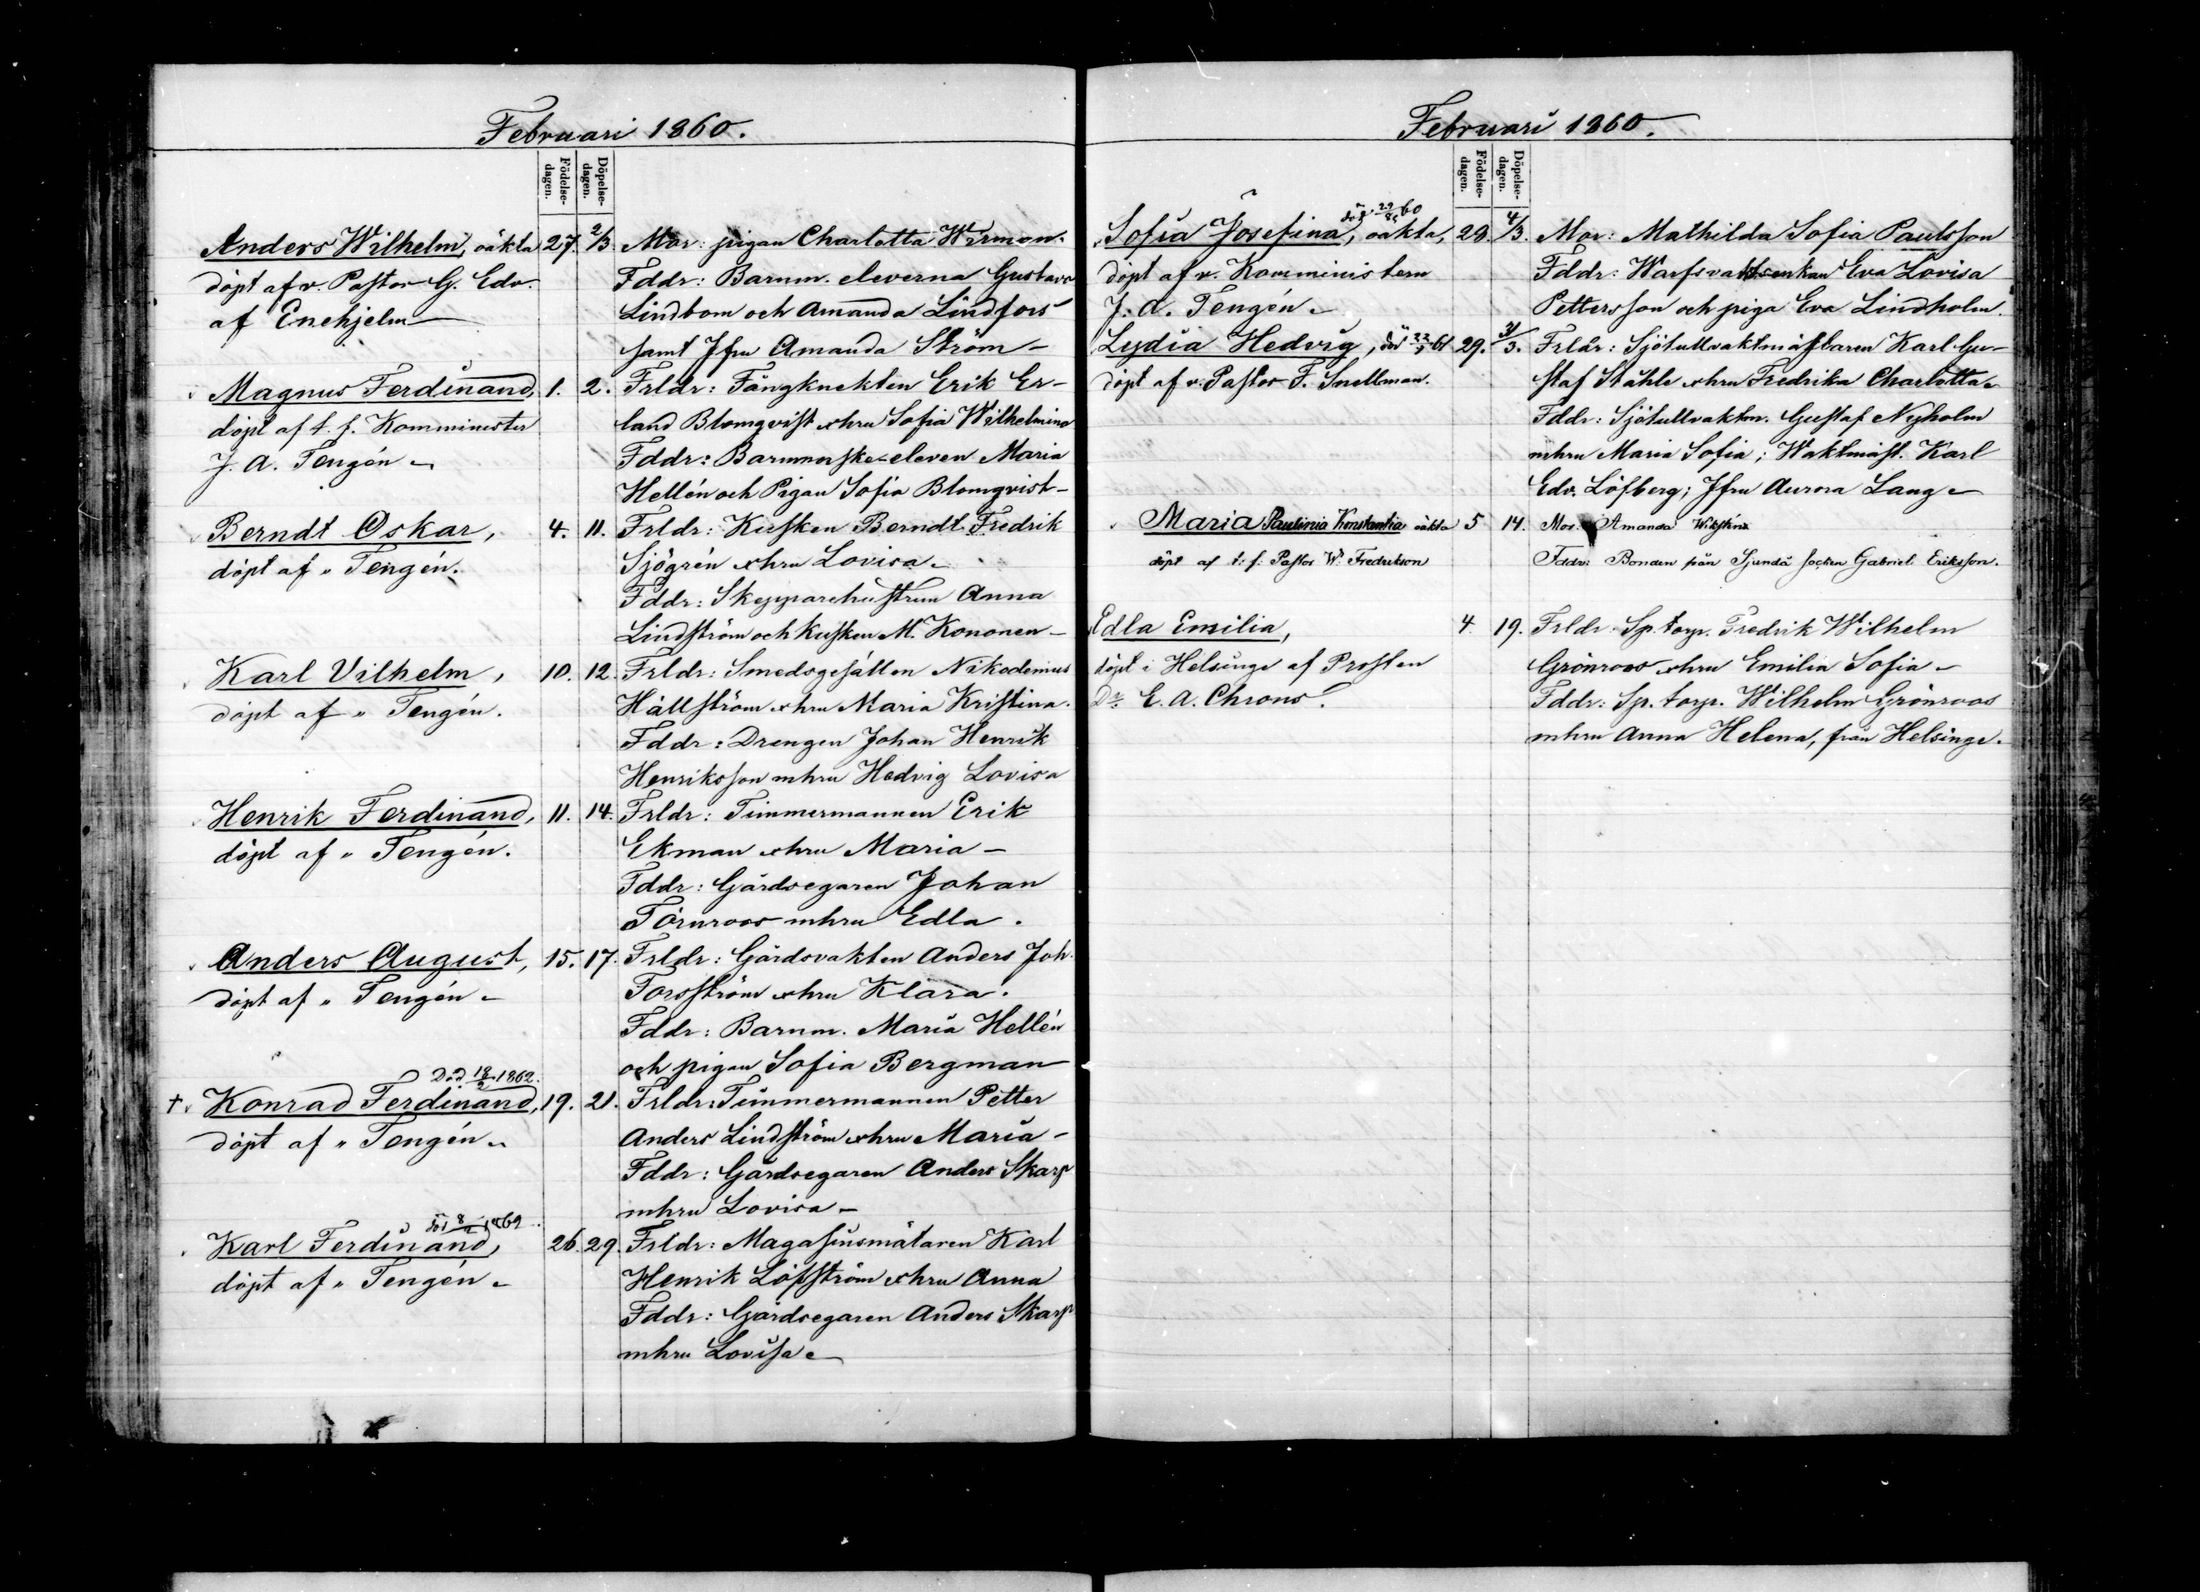 Februari 1860.
Födelse-
dagen.
Döpelse-
dagen.
Anders Wilhelm, oäkta 27. 2/3. Mor: pigan Charlotta Wirman.
döpt af v. Pastor G. Edv. Fddr: Barnm. eleverna Gustava
af Enehjelm Lindbom och Amanda Lindfors
samt Jfru Amanda Ström
Magnus Ferdinand, 1. 2. Frldr: Fångknekten Erik Er-
döpt af t. f. Komminister land Blomqvist o hru Sofia Wilhelmina
J. A. Tengén Fddr: Barnmorske-eleven Maria
Hellén och Pigan Sofia Blomqvist
Berndt Oskar, 4. 11. Frldr: Kusken Berndt Fredrik
döpt af " Tengén. Sjögrén o hru Lovisa
Fddr: Skepparehustrun Anna
Lindström och Kusken M. Kononen
Karl Vilhelm, 10. 12. Frldr: Smedsgesällen Nikodemus
döpt af " Tengén. Hällström o hru Maria Kristina.
Fddr: Drengen Johan Henrik
Henriksson mhru Hedvig Lovisa
Henrik Ferdinand, 11. 14. Frldr: Timmermannen Erik
döpt af " Tengén. Ekman o hru Maria
Fddr: Gårdsegaren Johan
Törnroos mhru Edla.
Anders August, 15. 17. Frldr: Gårdsvakten Anders Joh.
döpt af " Tengén Forsström o hru Klara.
Fddr: Barnm. Maria Hellén
och pigan Sofia Bergman
Död 18/2 1862.
† Konrad Ferdinand, 19. 21. Frldr: Timmermannen Petter
döpt af " Tengén Anders Lindström o hru Maria
Fddr: Gårdsegaren Anders Skarp
mhru Lovisa
död 8/ 1869.
Karl Ferdinand, 26. 29. Frldr: Magasinsmätaren Karl
döpt af " Tengén Henrik Löfström o hru Anna
Fddr: Gårdsegaren Anders Skarp
mhru Lovisa
Februari 1860.
Födelse-
dagen.
Döpelse-
dagen.
död 29/8 60
Sofia Josefina, oäkta, 28. 4/3. Mor: Mathilda Sofia Paulsson
döpt af v. Komministern Fddr: Warfsvaktsenkan Eva Lovisa
J. A. Tengén Pettersson och piga Eva Lindholm.
Lydia Hedvig, död 61 29. /3. Frldr: Sjötullvaktmästaren Karl Gu-
döpt af v. Pastor F. Snellman. staf Ståhle o hru Fredrika Charlotta
Fddr: Sjötullvaktm. Gustaf Nyholm
mhru Maria Sofia; Waktmäst. Karl
Edv. Löfberg; Jfru Aurora Lang
Maria Paulinia Konstantia oäkta 5 14. Mor: Amanda
döpt af t. f. Pastor W. Fredrikson Fddr: Bonden från Sjundå socken Gabriel Eriksson.
Edla Emilia, 4. 19. Frldr: Sp. torp. Fredrik Wilhelm
döpt i Helsinge af Prosten Grönroos o hru Emilia Sofia
Dr E. A. Chrons. Fddr: Sp. torp. Wilhelm Grönroos
mhru Anna Helena, från Helsinge.